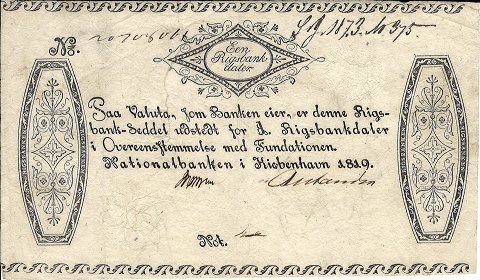 No.
Een
Rigsbank
daler.
Paa Valuta, som Banken eier, er denne Rigs-
bank-Seddel udstedt for 1. Rigsbankdaler
i Overeensstemmelse med Fundationen.
Nationalbanken i Kiøbenhavn 1819.
Not.